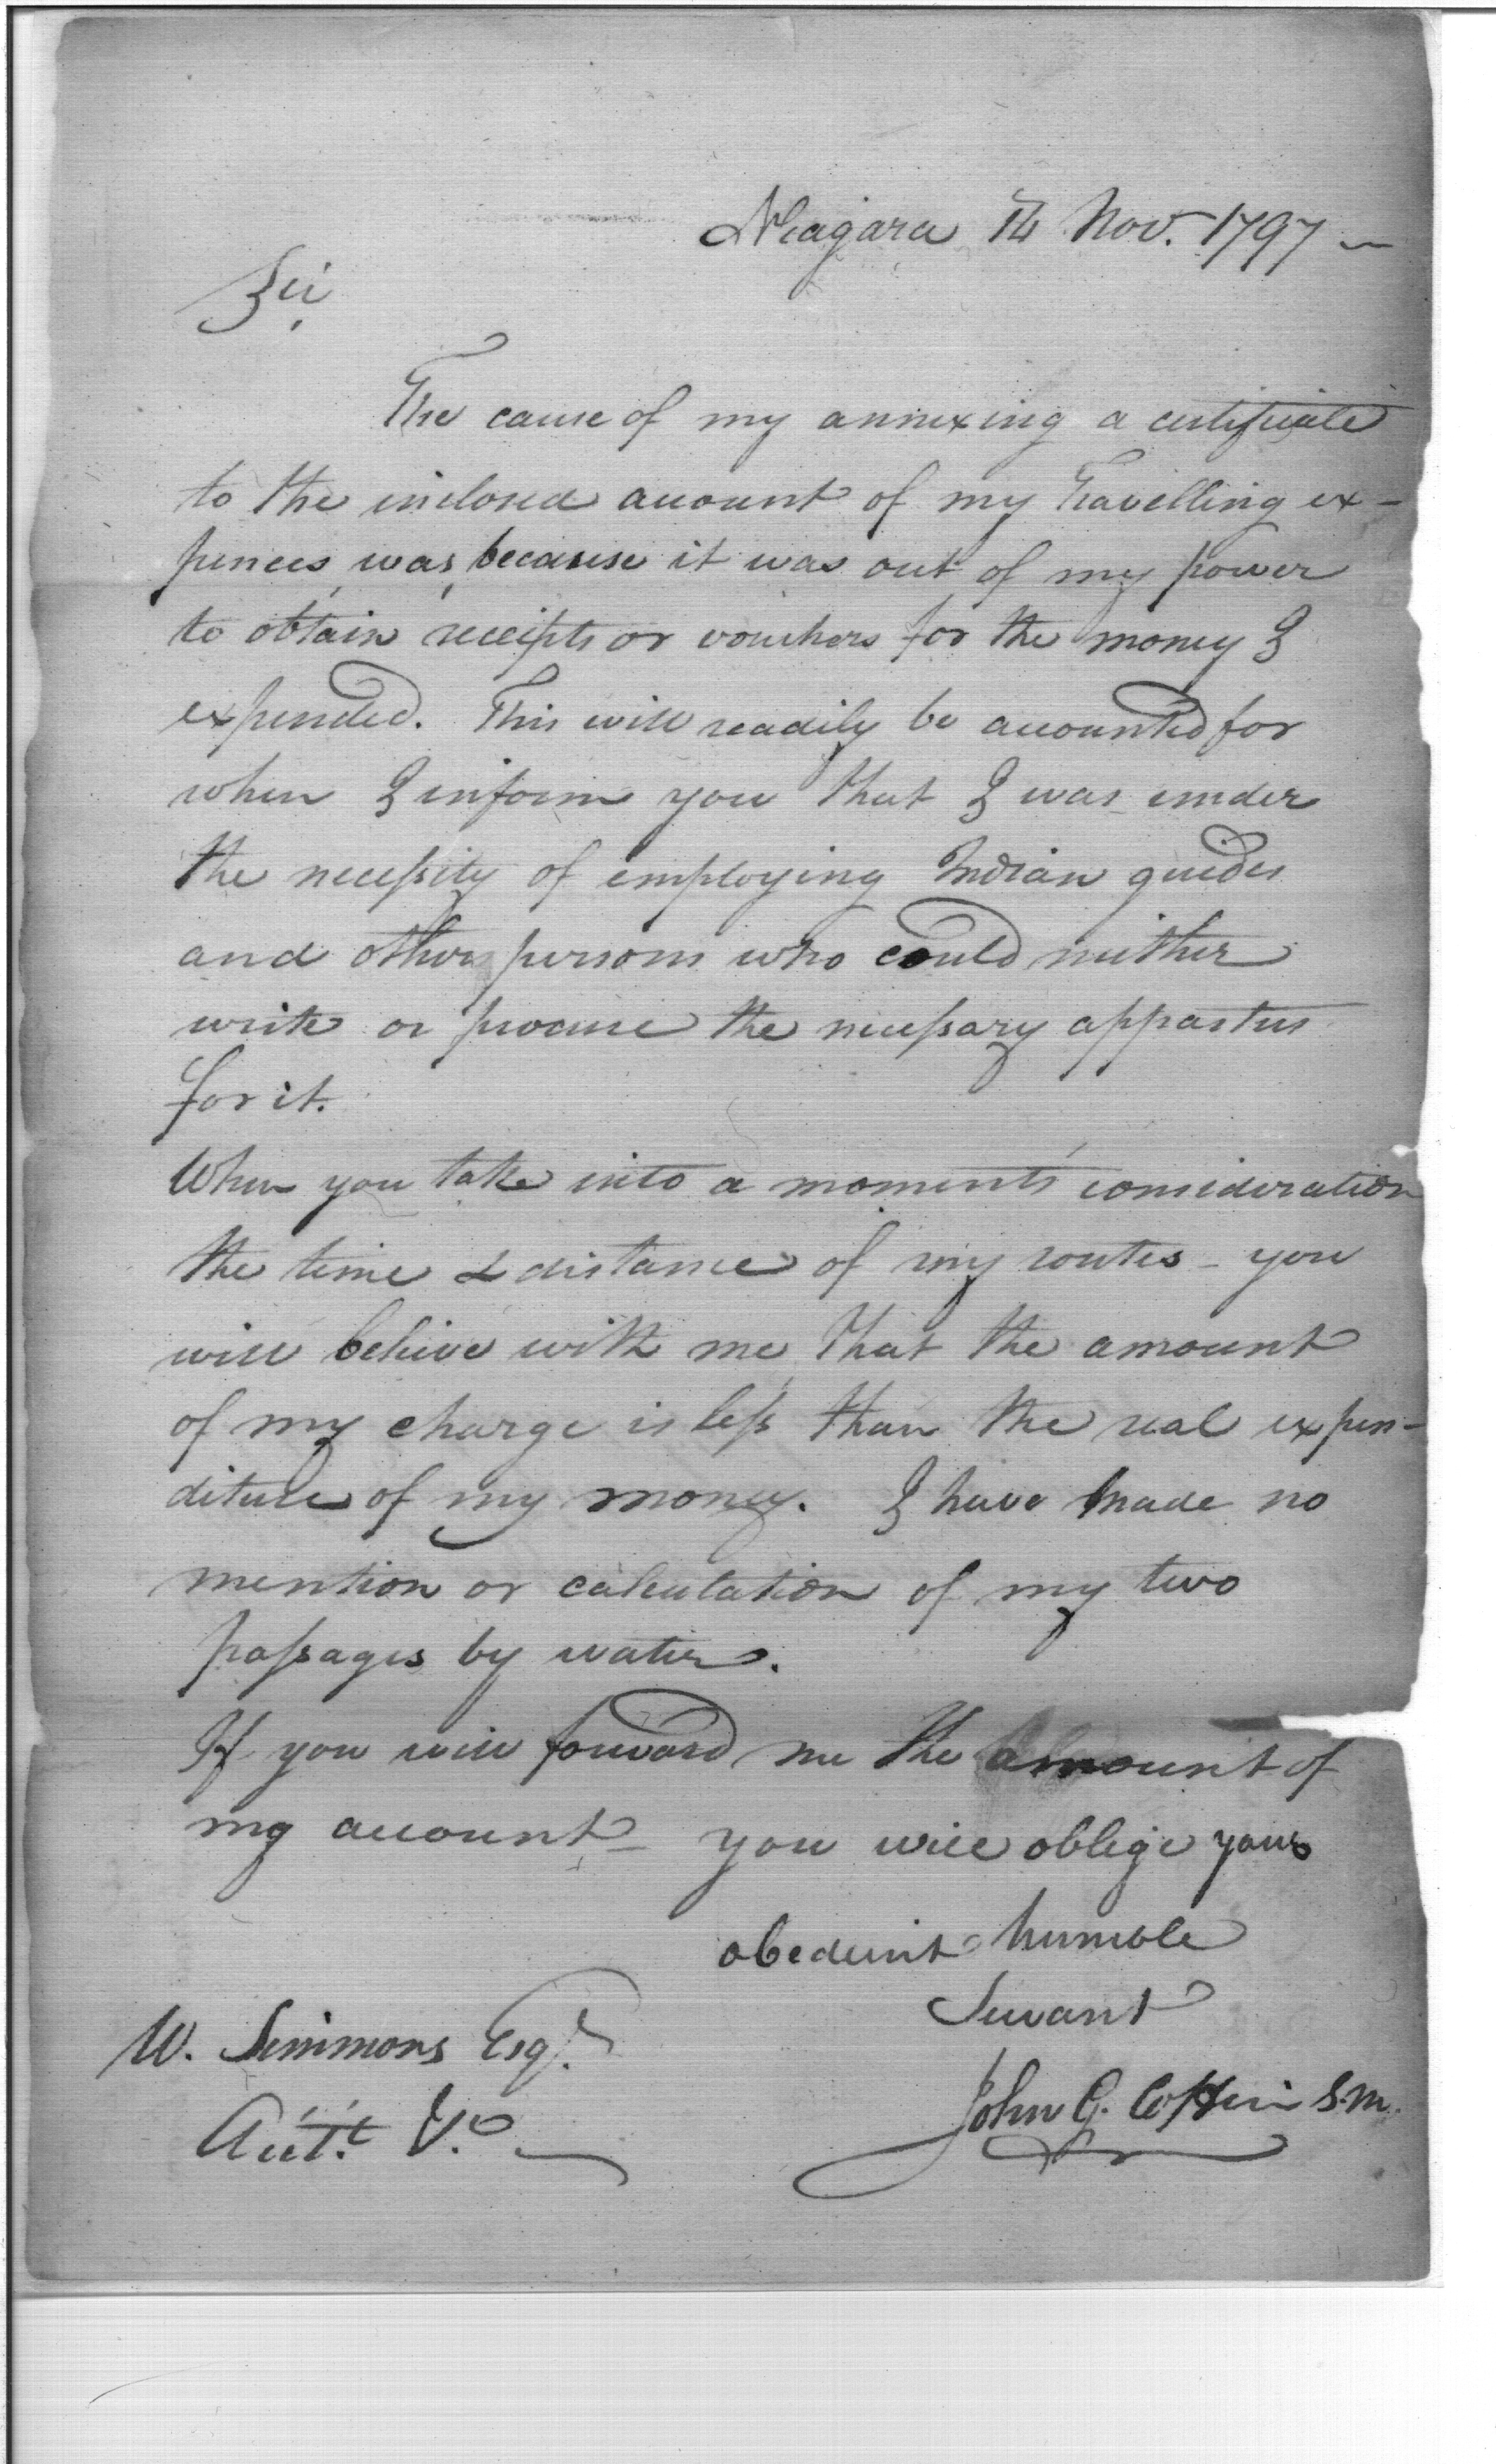 Niagara 14 Nov. 1797 —
Sir,
The cause of my annexing a certificate
to the inclosed account of my Travelling ex-
pences, was, because it was out of my power
to obtain receipts or vouchers for the money I
expended. This will readily be accounted for
when I inform you that I was under
the necessity of employing Indian guides
and other persons who could neither
write or procure the necessary appartus
for it.
When you take into a moment's consideration
the time & distance of my routes - you
will believe with me, that the amount
of my charge is less than the real expen-
diture of my money. I have made no
mention or calculation of my two
passages by water.
If you will forward me the amount of
my account — you will oblige your
obedient humble
Servant
W. Simmons Esqr.
John G. Coffin S.M.